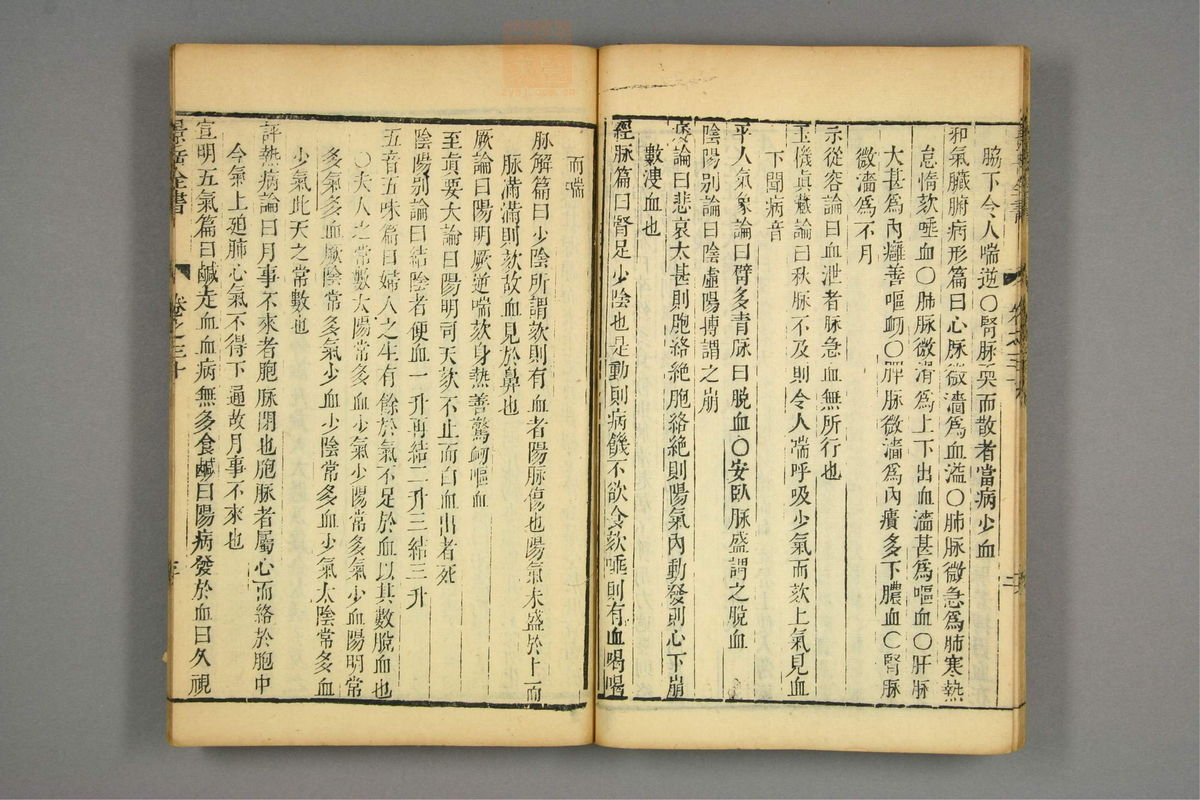 脇下令人喘逆〇腎脉㚖而散者當病少血
邪氣臟腑病形篇曰心脉微濇爲血溢〇肺脉微急爲肺寒熱
怠惰欬唾血〇肺脉微滑爲上下出血濇甚爲嘔血〇肝脉
大甚爲內癰善嘔衂〇脾脉微濇爲內㿉多下膿血〇腎脉
微濇爲不月
示從容論曰血泄者脉急血無所行也
玉機眞藏論曰秋脉不及則令人喘呼吸少氣而欬上氣見血
下聞病音
平人氣象論曰臂多青脉曰脫血〇安臥脉盛謂之脫血
陰陽别論曰陰虛陽搏謂之崩
痿論曰悲哀太甚則胞絡絶胞絡絶則陽氣內動發則心下崩
數溲血也
經脉篇曰腎足少陰也是動則病饑不欲食欬唾則有血喝喝
而喘
脉解篇曰少陰所謂欬則有血者陽脉傷也陽氣未盛於上而
脉滿滿則欬故血見於鼻也
厥論曰陽明厥逆喘欬身熱善驚衂嘔血
至眞要大論曰陽明司天欬不止而白血出者死
陰陽别論曰結陰者便血一升再結二升三結三升
五音五味篇曰婦人之生有餘於氣不足於血以其數脫血也
〇夫人之常數太陽常多血少氣少陽常多氣少血陽明常
多氣多血厥陰常多氣少血少陰常多血少氣太陰常多血
少氣此天之常數也
評熱病論曰月事不來者胞脉閉也胞脉者屬心而絡於胞中
今氣上廹肺心氣不得下通故月事不來也
宣明五氣篇曰鹹走血血病無多食鹹曰陽病發於血曰久視
景岳全書
卷之三十